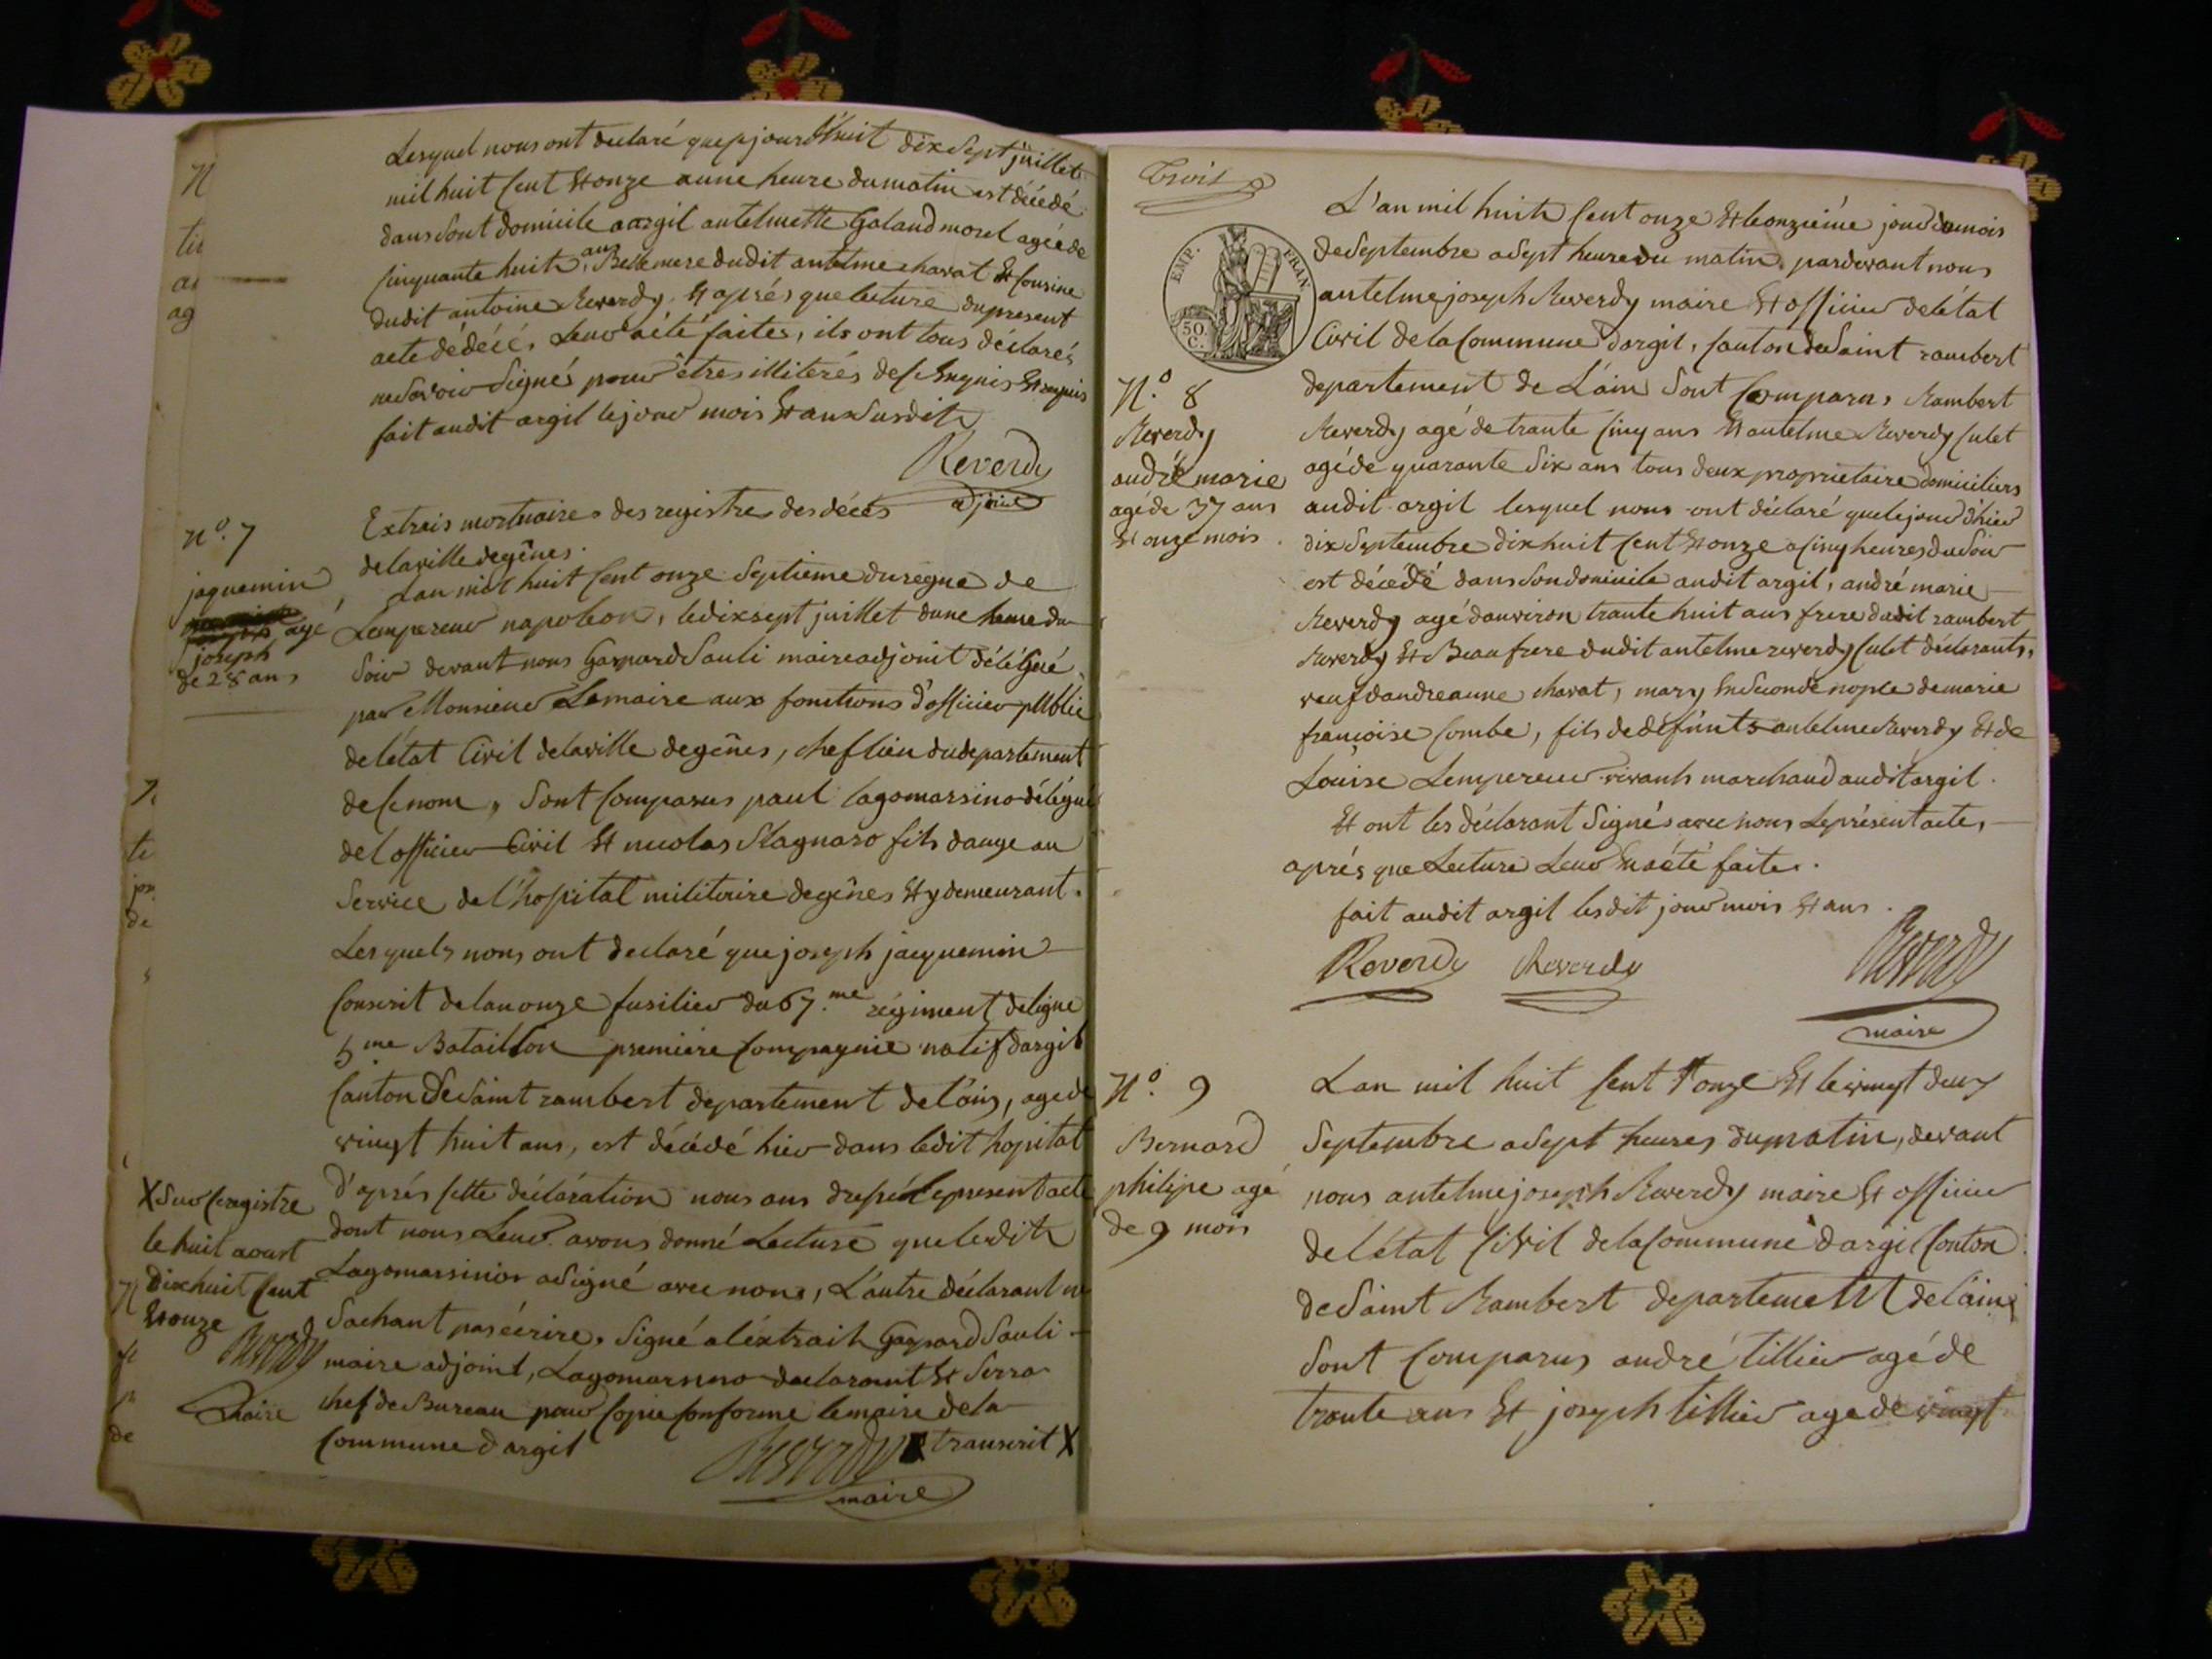 Lesquel nous ont declaré quepjourdhuit dix Sept juillet
mil huit Cent Et onze aune heure dumatin est décédé
dans Sont domicile aargil antelmette Galand morel agée de
Cinquante huit ans Bellemere dudit antelme charat Et Cousine
dudit antoine Reverdy. Et aprés que lecture du present
acte dédécé, Leur aété faites, ils ont tous déclarés
ne Savoir Signés pour êtres illiterés de Ce Enquis Et requis
fait audit argil le jour mois Et an Susdits
Reverdy
adjoint
N°. 7
jaquemin
agé
joseph
de 28 ans
Extrais mortuaires des registres des décés
delaville degênes.
Lan mil huit Cent onze Septieme duregne de
Lempereur napoleon, ledixsept juillet dune heure du
Soir devant nous Gaspard Sauli maire adjoint délégué
par Monsieur Lemaire aux fonctions d'officier public
deletat Civil delaville degênes, chef lieu dudepartement
deCenom, Sont Comparus paul lagomarsino délégué
del officier Civil Et nicolas Stagnaro fils dange au
Service de l'hopital militaire degênes Et y demeurant.
Lesquels nous ont declaré que joseph jacquemin
Conscrit delan onze fusilier du 67.me régiment deligne
5me Bataillon premiere Compagnie natif dargil
Canton DeSaint rambert departement delain, age de
vingt huit ans, est décédé hier dans ledit hopital
D'aprés Cette déclaration nous avons dressé lepresent acte
dont nous Leur avons donné Lecture que ledit
Lagomarsinos aSigné avec nous, L'autre déclarant ne
Sachant pas écrire. Signé aléxtrait Gaspard Sauli
maire adjoint, Lagomarsino declarant Et Serra
chef de Bureau pour Copie Conforme le maire dela
Commune dargil transcrit X
Reverdy
maire
X Sur Ceregistre
le huit aoust
Dix huit Cent
Et onze
Reverdy
maire
Trois
EMP. FRAN.
50. C.
N°. 8
Reverdy
andré marie
agé de 37 ans
Et onze mois.
L'an mil huit Cent onze Et leonziéme jour dumois
deSeptembre aSept heure du matin. pardevant nous
antelme joseph Reverdy maire Et officier delétat
Civil dela Commune dargil, Canton deSaint rambert
departement de L'ain Sont Comparus Rambert
Reverdy agé de trante Cinq ans Et antelme Reverdy Culet
agé de quarante Six ans tous deux proprietaire domiciliers
audit argil lesquel nous ont déclaré quelejour dhier
dix Septembre dixhuit Cent Et onze aCinq heures duSoir
est décédé dans Son domicile audit argil, andré marie
Reverdy agé danviron trante huit ans frere dudit rambert
Reverdy Et Beaufrere dudit antelme reverdy Culet déclarants,
veuf dandreanne charat, mary En Seconde nopce demarie
françoise Combe, fils de défunts antelme Reverdy Et de
Louise Lempereur vivants marchand audit argil.
Et ont les déclarant Signés avec nous Leprésent acte,
aprés que Lecture Leur En aété faite.
fait audit argil lesdit jour mois Et ans.
Reverdy Reverdy Reverdy
maire
N°. 9
Bernard
philipe agé
de 9 mois
Lan mil huit Cent onze Et levingt deux
Septembre aSept heures dumatin, devant
nous antelme joseph Reverdy maire Et officier
delétat Civil delaCommune dargil Canton
deSaint Rambert departement delain
Sont Comparus andré tillier agé de
trante ans Et joseph tillier age de vingt